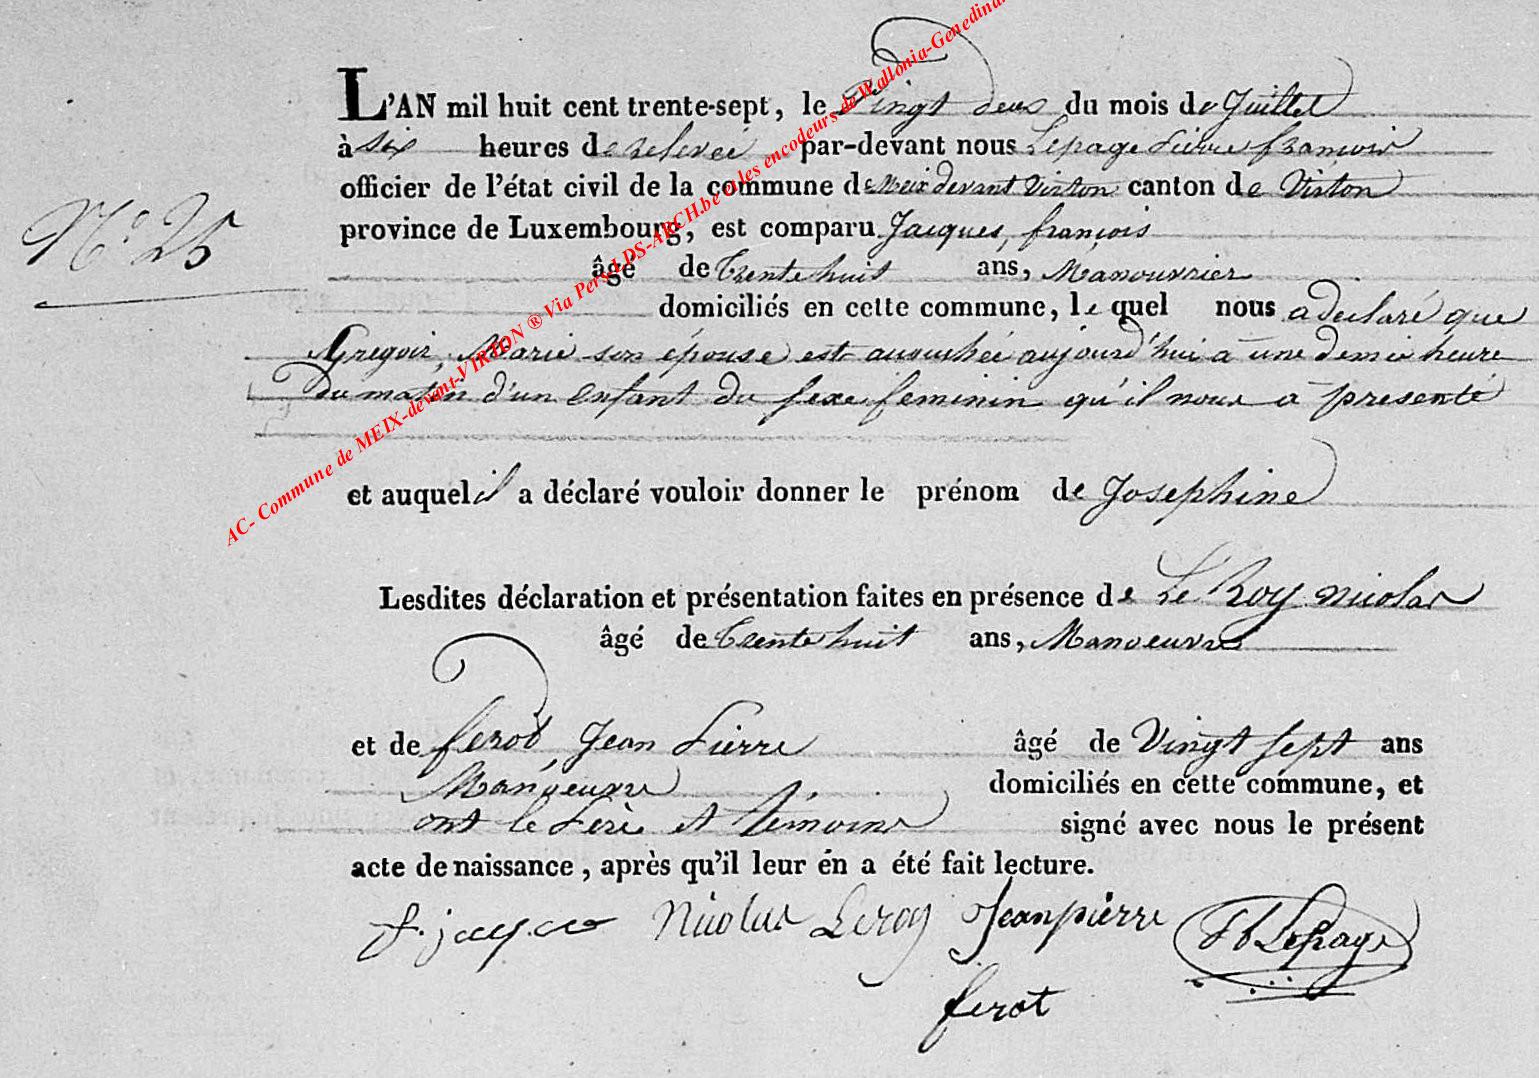 L'AN mil huit cent trente-sept, le Vingt deux du mois de Juillet
à six heures de relevée par-devant nous Lepage Pierre françois
officier de l'état civil de la commune de Meix devant Virton canton de Virton
N.o 25
province de Luxembourg, est comparu Jacques, françois
âgé de trente huit ans, Manouvrier
domiciliés en cette commune, le quel nous a declaré que
Gregoir, Marie son épouse est accuchée aujourd'hui a une demie heure
du matin d'un Enfant du sexe feminin qu'il nous a presenté
et auquel il a déclaré vouloir donner le prénom de Josephine
Lesdites déclaration et présentation faites en présence de Le Roy nicolas
âgé de trente huit ans, Manoeuvre
et de ferot, Jean Pierre âgé de Vingt sept ans
Manoeuvre domiciliés en cette commune, et
ont le Père et témoins signé avec nous le présent
acte de naissance, après qu'il leur en a été fait lecture.
Nicolas Leroy Jeanpierre Lepage
ferot
AC- Commune de MEIX-devant-VIRTON ® Via Pers-LDS-ARCH.be et les encodeurs de Wallonia-Genedina